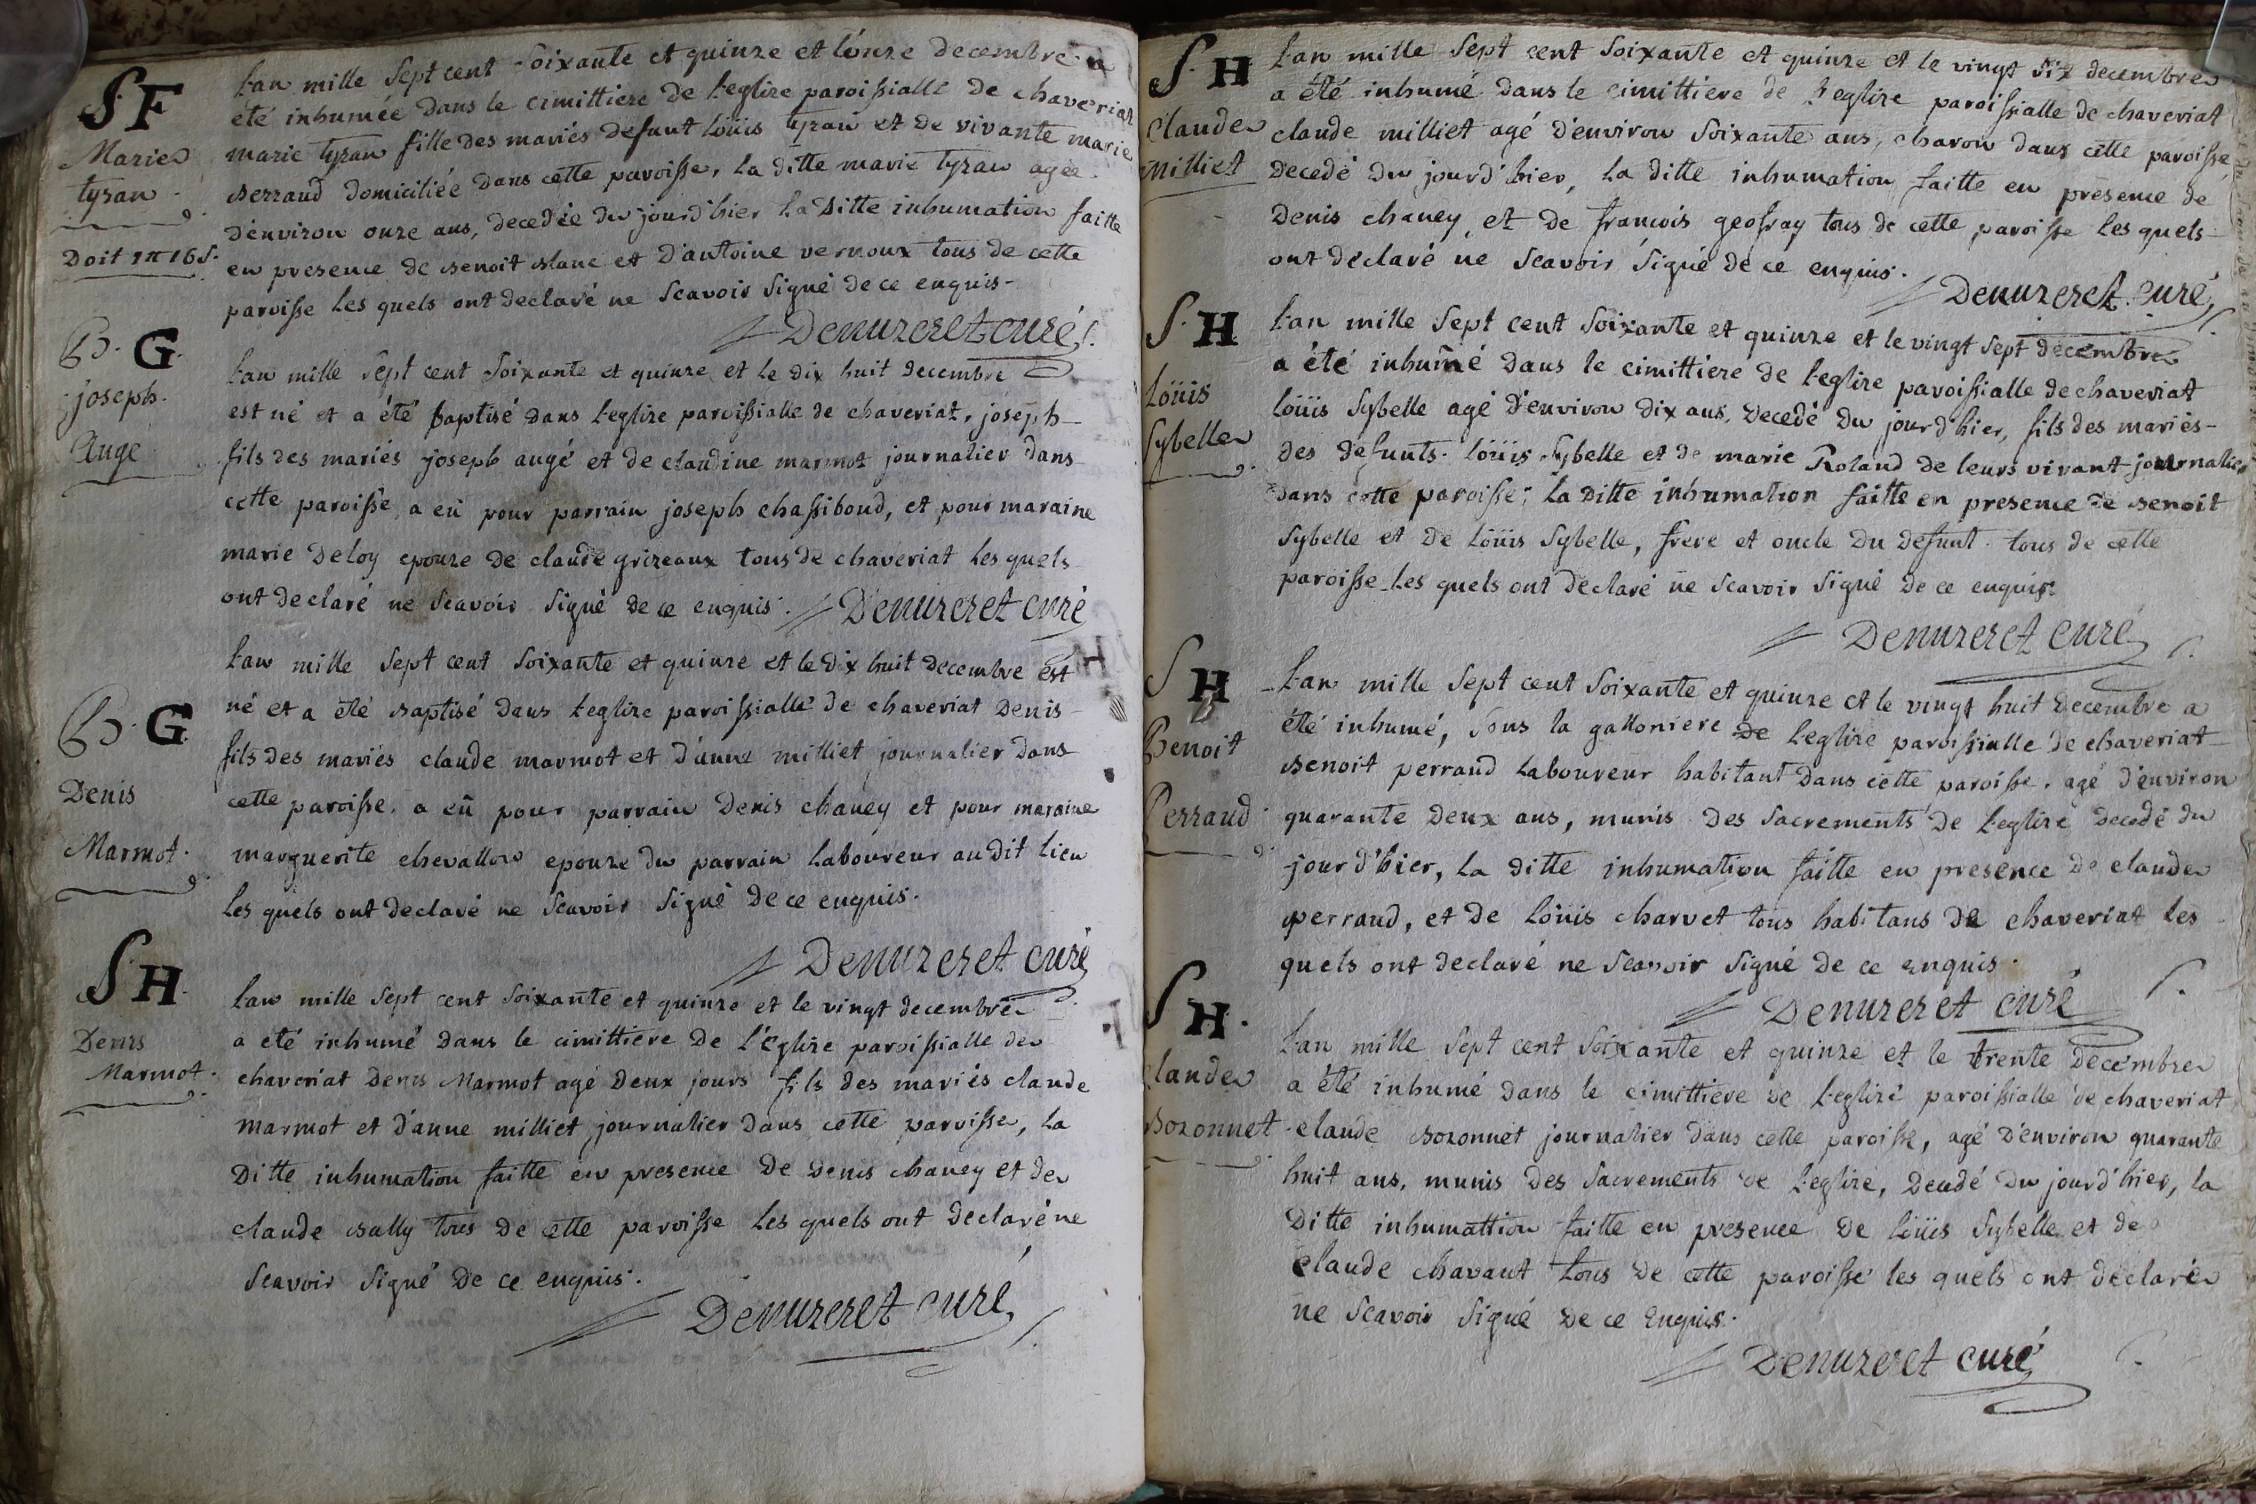 S F
Marie
tyran
Doit 1tt 16 s.
L'an mille Sept cent Soixante et quinze et l'onze decembre a
été inhumée dans le cimittiere de L'eglize paroissialle de chaveriat
marie tyran fille des mariés defunt Loüis tyran et de vivante marie
Berraud domiciliée dans cette paroisse, La ditte marie tyran agée
d'environ onze ans, decedée du jourd'hier La ditte inhumation faitte
en presence de Benoit Blanc et D'antoine vernoux tous de cette
paroisse Les quels ont declaré ne Scavoir Signé de ce enquis.
Denuzeret curé
B. G
joseph.
Augé
L'an mille Sept cent Soixante et quinze et Le dix huit decembre
est né et a été Baptisé dans L'eglize paroissialle de chaveriat, joseph
fils des mariés joseph augé et de claudine marmot journalier dans
cette paroisse, a eü pour parrain joseph chassiboud, et pour maraine
marie Deloy epouze de claude grizeaux tous de chaveriat Les quels
ont declaré ne Scavoir Signé de ce enquis. Denuzeret curé
B. G
Denis
Marmot.
L'an mille Sept cent Soixante et quinze et le dix huit decembre est
né et a été Baptisé dans L'eglize paroissialle de chaveriat Denis
fils des mariés claude marmot et d'anne milliet journalier dans
cette paroisse, a eü pour parrain Denis chaney et pour maraine
marguerite chevallon epouze du parrain Laboureur au dit lieu
Les quels ont declaré ne Scavoir Signé de ce enquis.
Denuzeret curé
S H
Denis
Marmot.
L'an mille Sept cent Soixante et quinze et le vingt decembre
a eté inhumé dans le cimittiere de L'Eglize paroissialle de
chaveriat Denis Marmot agé Deux jours fils des mariés claude
marmot et d'anne milliet journalier dans cette paroisse, La
Ditte inhumation faitte en presence de Denis chaney et de
claude Bally tous de cette paroisse Les quels ont declaré ne
Scavoir Signé de ce enquis.
Denuzeret curé
S. H
Claude
Milliet
L'an mille Sept cent Soixante et quinze et le vingt Six decembre
a été inhumé dans le cimittiere de L'eglize paroissialle de chaveriat
claude milliet agé d'environ Soixante ans, charon dans cette paroisse,
Decedé du jourd'hier, La ditte inhumation faitte en presence de
Denis chaney, et de francois geofray tous de cette paroisse Les quels
ont declaré ne Scavoir Signé de ce enquis.
Denuzeret. curé
S. H
Loüis
Sybelle
L'an mille Sept cent Soixante et quinze et le vingt Sept decembre
a été inhumé dans le cimittiere de L'eglize paroissialle de chaveriat
Loüis Sybelle agé d'environ dix ans, Decedé du jourd'hier, fils des mariés
des defunts Loüis Sybelle et de marie Roland de leurs vivant journalier
dans cette paroisse, La Ditte inhumation faitte en presence de Benoit
Sybelle et de Loüis Sybelle, frere et oncle du Defunt tous de cette
paroisse Les quels ont declaré ne Scavoir Signé de ce enquis.
Denuzeret curé
S H
Benoit
Perraud
L'an mille Sept cent Soixante et quinze et le vingt huit decembre a
été inhumé, Sous la galloniere de L'eglize paroissialle de chaveriat
Benoit perraud Laboureur habitant dans cette paroisse, agé d'environ
quarante Deux ans, munis des Sacrements de L'eglize decedé du
jourd'hier, La ditte inhumation faitte en presence de claude
perraud, et de Loüis charvet tous habitans de chaveriat Les
quels ont declaré ne Scavoir Signé de ce enquis.
Denuzeret curé
S H.
Claude
Bozonnet
L'an mille Sept cent Soixante et quinze et le trente Decembre
a été inhumé dans le cimittiere de L'eglize paroissialle de chaveriat
claude Bozonnet journalier dans cette paroisse, agé d'environ quarante
huit ans, munis des Sacrements de L'eglize, Decedé du jourd'hier, la
Ditte inhumattion faitte en presence de Loüis Sybelle et de
claude chavant tous de cette paroisse les quels ont declaré
ne Scavoir Signé de ce Enquis.
Denuzeret curé